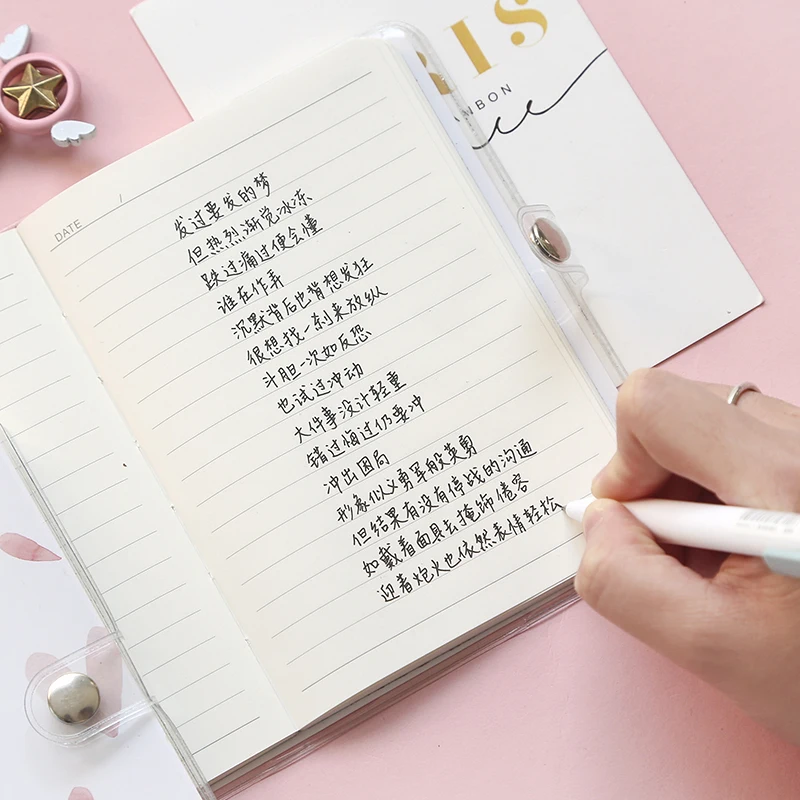 RIS
AMBON
DATE /
发过要发的梦
但热烈渐觉冰冻
跌过痛过便会懂
谁在作弄
沉默背后也背想发狂
很想找一刹来放纵
斗胆一次如反恐
也试过冲动
大件事没计轻重
错过悔过仍要冲
冲出困局
形象似义勇军般英勇
但结果有没有停战的沟通
如戴着面具去掩饰倦容
迎着炮火也依然表情轻松